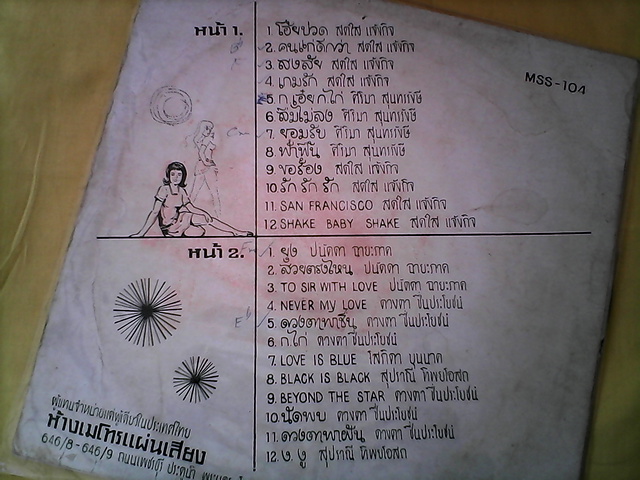 หน้า 1.
1. โอ๊ยปวด สดใส แจ้งกิจ
2. คนแก่ดีกว่า สดใส แจ้งกิจ
3. สงสัย สดใส แจ้งกิจ
4. เกมรัก สดใส แจ้งกิจ
5. ก.เอ๋ย ก.ไก่
6. ลืมไม่ลง
7. ยอมรับ
8. ฟ้าฟื้น
9. ขอร้อง สดใส แจ้งกิจ
10. รัก รัก รัก สดใส แจ้งกิจ
11. SAN FRANCISCO สดใส แจ้งกิจ
12. SHAKE BABY SHAKE สดใส แจ้งกิจ
MSS-104
หน้า 2.
1. ยุ่ง ปนัดดา
2. สวยตรงไหน ปนัดดา
3. TO SIR WITH LOVE ปนัดดา
4. NEVER MY LOVE ดวงตา ชื่นประโยชน์
5. ดวงตาพาชื่น ดวงตา ชื่นประโยชน์
6. ก.ไก่ ดวงตา ชื่นประโยชน์
7. LOVE IS BLUE ไศกิตา บุนนาค
8. BLACK IS BLACK สุปราณี
9. BEYOND THE STAR ดวงตา ชื่นประโยชน์
10. นัดพบ ดวงตา ชื่นประโยชน์
11. ดวงตาพาฝัน ดวงตา ชื่นประโยชน์
12. ง. งู สุปราณี
ผู้แทนจำหน่ายแต่ผู้เดียวในประเทศไทย
ห้างเมโทรแผ่นเสียง
646/8-646/9 ถนนเพชรบุรี ประตูน้ำ